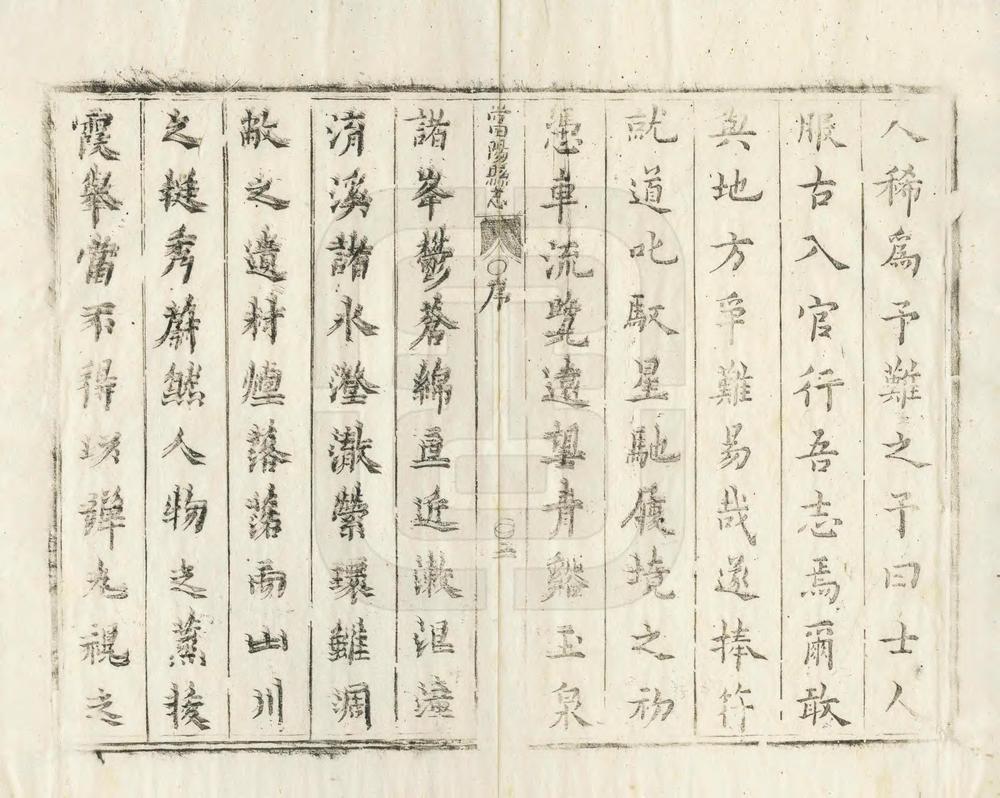 人稀爲予難之予曰士人
服古入官行吾志焉爾敢
與地方爭難易哉遂捧符
就道叱馭星馳履境之初
憑車流覽遠望青谿玉泉
當陽縣志
〇序
〇二
諸峯鬱蒼綿亘近漱沮漳
淯溪諸水澄澈縈環雖凋
敝之遺村煙落落而山川
之挺秀蔚然人物之蒸搜
霞舉當不得以彈丸視之